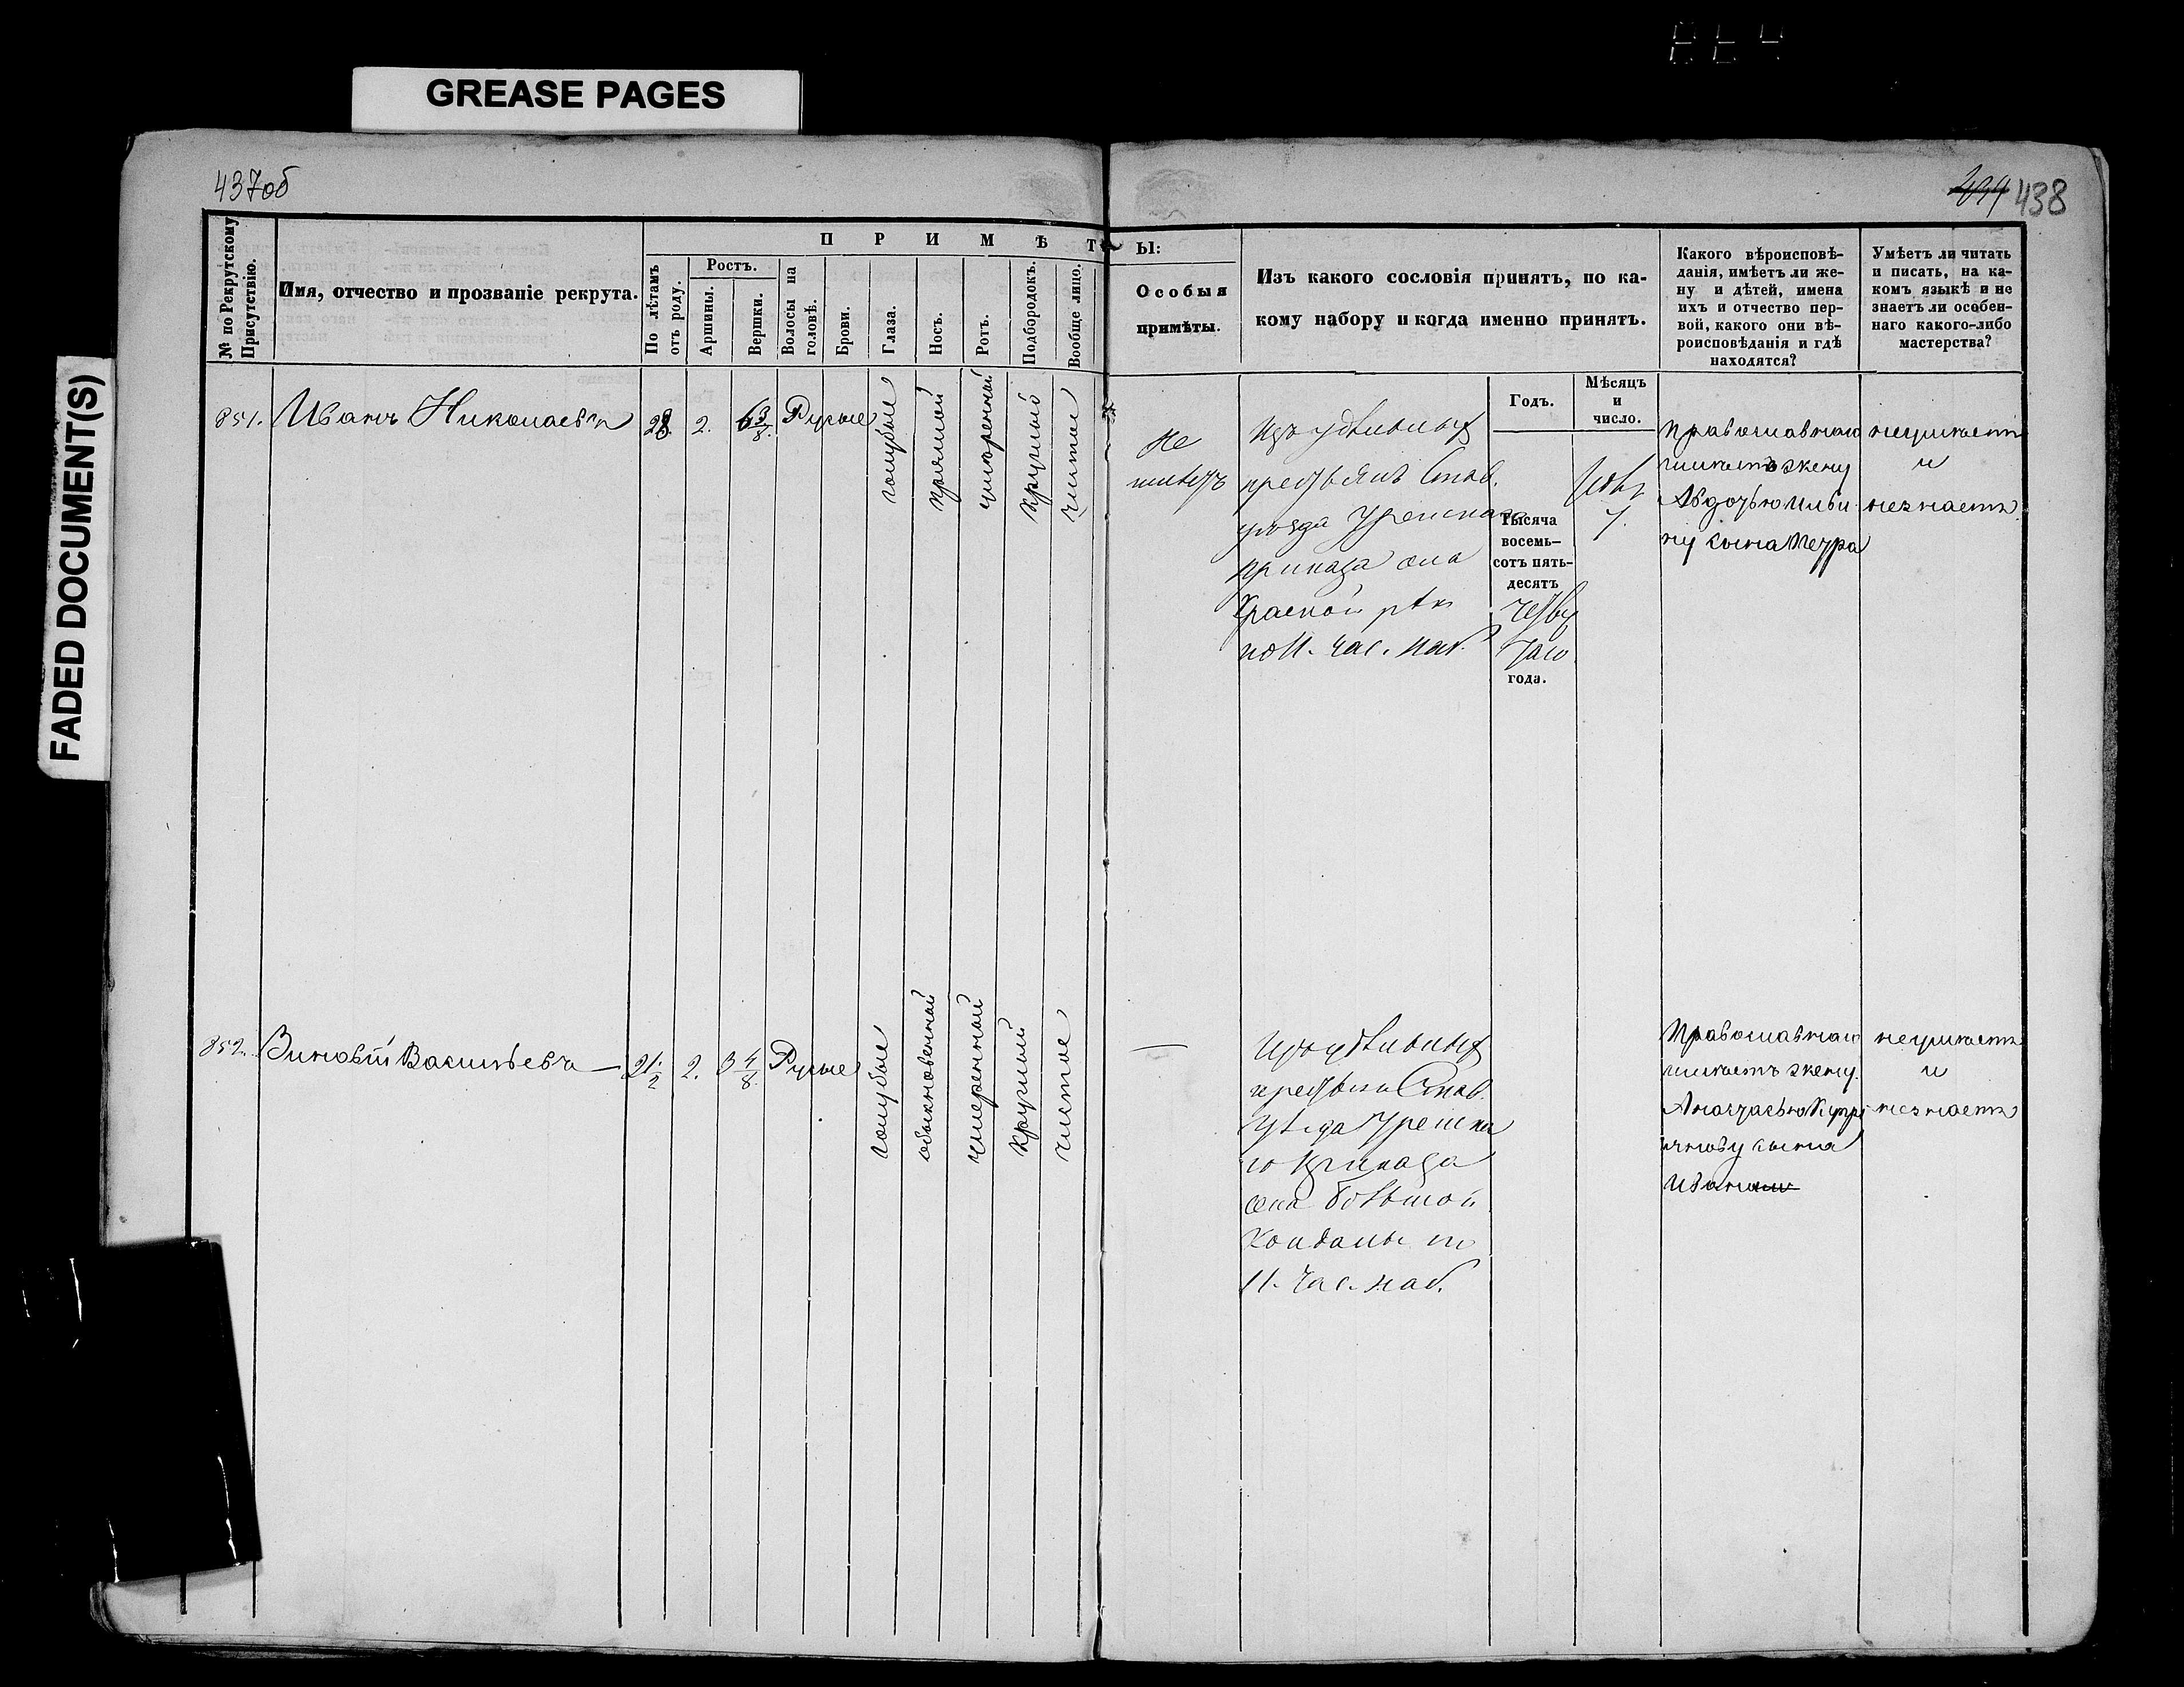 GREASE PAGES
FADED DOCUMENT(S)
437об
438
№ по Рекрутскому Присутствію.
Имя, отчество и прозваніе рекрута.
П Р И М Ѣ Т
По лѣтамъ отъ роду.
Ростъ.
Аршины.
Вершки.
Волосы на головѣ.
Брови.
Глаза.
Носъ.
Ротъ.
Подбородокъ.
Вообще лицо.
Ы:
Особыя
примѣты.
Изъ какого сословія принятъ, по ка-
кому набору и когда именно принятъ.
Какого вѣроисповѣ-
данія, имѣетъ ли же-
ну и дѣтей, имена
ихъ и отчество пер-
вой, какого они вѣ-
роисповѣданія и гдѣ
находятся?
Умѣетъ ли читать
и писать, на ка-
комъ языкѣ и не
знаетъ ли особен-
наго какого-либо
мастерства?
Годъ.
Мѣсяцъ
и
число.
851. Иванъ Николаевъ 28 2. 6 3/8. Русые
голубые
прямой
умѣренный
круглый
чистое
Не
имѣетъ
Изъ удѣльныхъ
крестьянъ Став.
уѣзда
приказа села
Красной рѣки
по 11. час. наб.
Тысяча
восемь-
сотъ пять-
десятъ
четвер
таго
года.
7.
Православнаго
имѣетъ жену
Авдотью Ильи
ну сына Петра
неумѣетъ
и
незнаетъ
852. Зиновій Васильевъ 21 1/2 2. 3 4/8. Русые
голубые
обыкновенный
умеренный
круглый
чистое
Изъ удѣльныхъ
крестьянъ Став.
уѣзда
го приказа
села большой
Кандалы по
11. час. наб.
Православнаго
имѣетъ жену
Анастасью
нову сына
Ивана
неумѣетъ
и
незнаетъ